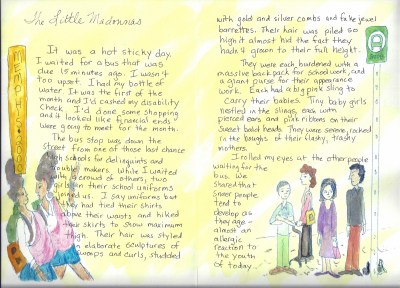 The Little Madonnas
It was a hot sticky day.
I waited for a bus that was
due 15 minutes ago. I wasn't
too upset. I had my bottle of
water. It was the first of the
month and I'd cashed my disability
check. I'd done some shopping
and it looked like financial ends
were going to meet for the month.
The bus stop was down the
street from one of those last chance
high schools for delinquents and
trouble makers. While I waited
in a crowd of others, two
girls in their school uniforms
joined us. I say uniforms but
they had tied their shirts
above their waists and hiked
their skirts to show maximum
thigh. Their hair was styled
in elaborate sculptures of
swoops and curls, studded
with gold and silver combs and fake jewel
barrettes. Their hair was piled so
high it almost hid the fact they
hadn't grown to their full height.
They were each burdened with a
massive back pack for school work, and
a giant purse for their appearance
work. Each had a big pink sling to
carry their babies. Tiny baby girls
nestled in the slings, each with
pierced ears and pink ribbons on their
sweet bald heads. They were serene, rocked
in the boughs of their flashy, trashy
mothers.
I rolled my eyes at the other people
waiting for the
bus. We
shared that
sneer people
tend to
develop as
they age-
almost an
allergic
reaction to
the youth
of today...
A